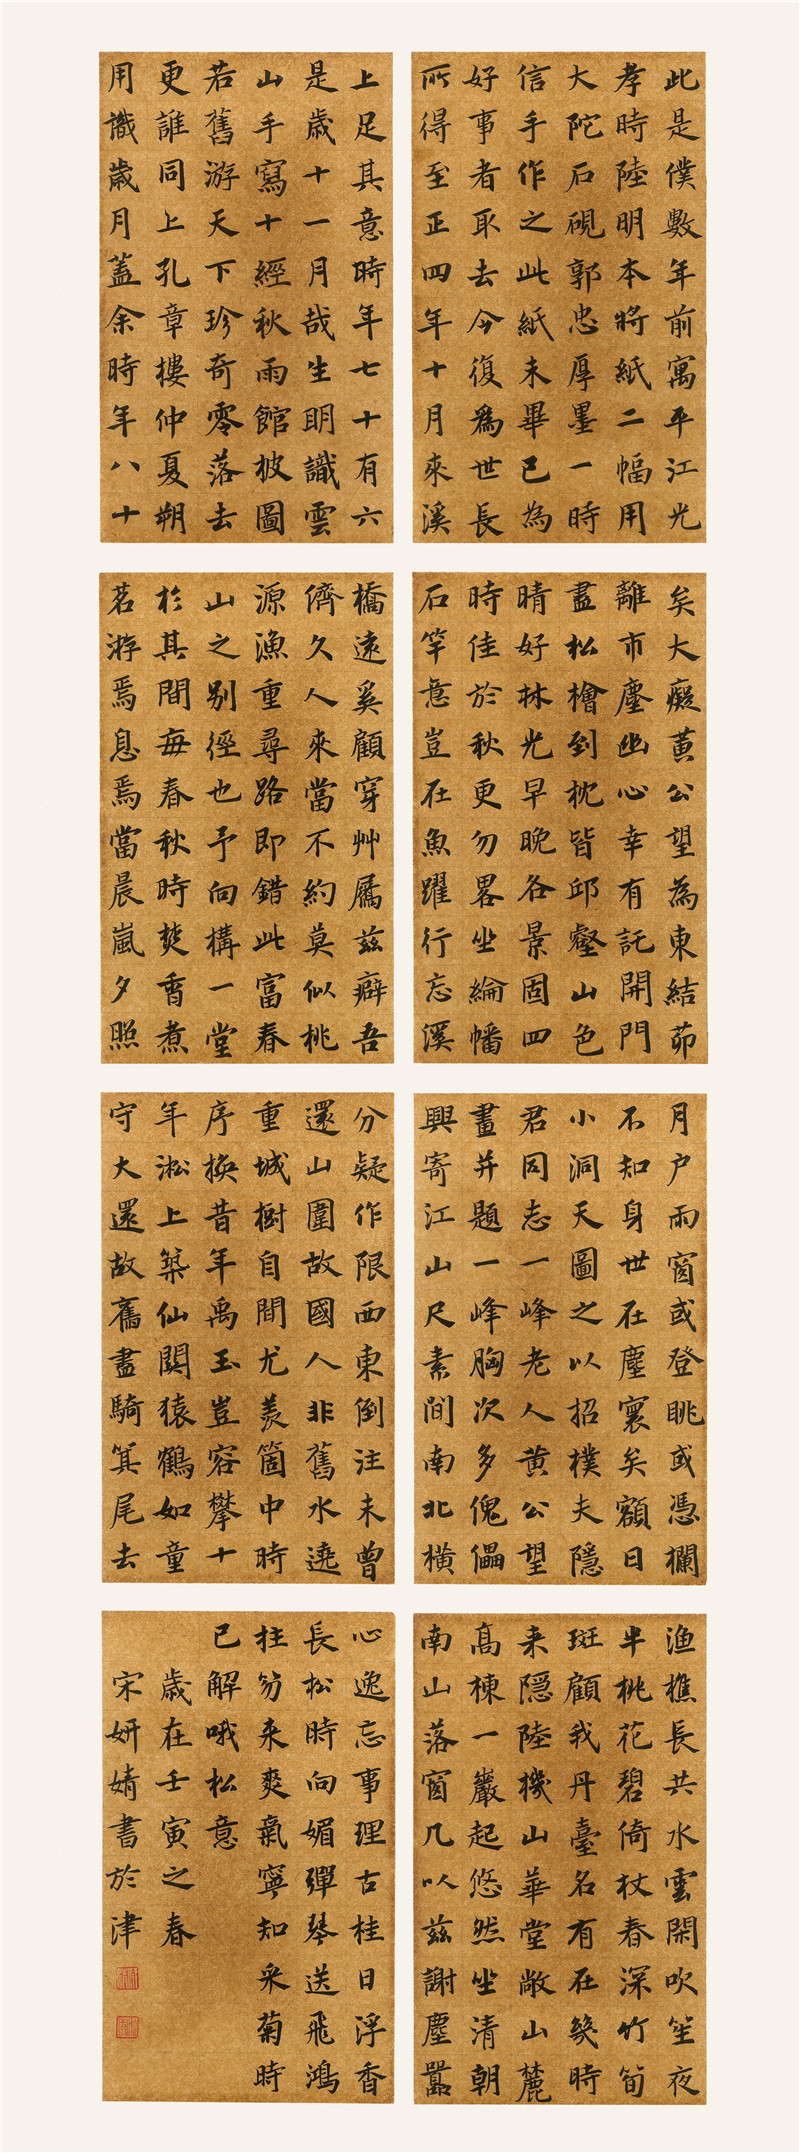 此是僕數年前寓平江光
孝時陸明本將紙二幅用
大陀石硯郭忠厚墨一時
信手作之此紙未畢已為
好事者取去今復為世長
所得至正四年十月來溪
上足其意時年七十有六
是歲十一月哉生明識雲
山手寫十經秋雨館披圖
若舊游天下珍奇零落去
更誰同上孔章樓仲夏朔
用識歲月蓋余時年八十
矣大癡黃公望為東結茆
離市塵幽心幸有託開門
盡松檜到枕皆邱壑山色
晴好林光早晚各景固四
時佳於秋更勿畧坐綸幡
石竿意豈在魚躍行忘溪
橋遠奚顧穿艸屩茲癖吾
儕久人來當不約莫似桃
源漁重尋路即錯此富春
山之別徑也予向構一堂
於其間每春秋時焚香煮
茗游焉息焉當晨嵐夕照
月户雨窗或登眺或憑欄
不知身世在塵寰矣額曰
小洞天圖之以招樸夫隱
君同志一峰老人黃公望
畫并題一峰胸次多傀儡
興寄江山尺素間南北橫
分疑作限西東倒注未曾
還山圍故國人非舊水遶
重城樹自間尤羨箇中時
序換昔年禹玉豈容攀十
年淞上築仙關猿鶴如童
守大還故舊盡騎箕尾去
漁樵長共水雲閑吹笙夜
半桃花碧倚杖春深竹筍
斑顧我丹臺名有在幾時
来隱陸機山華堂敞山麓
高棟一巖起悠然坐清朝
南山落窗几以茲謝塵囂
心逸忘事理古桂日浮香
長松時向媚彈琴送飛鴻
拄笏来爽氣寧知采菊時
已解哦松意
歲在壬寅之春
宋妍婧書於津